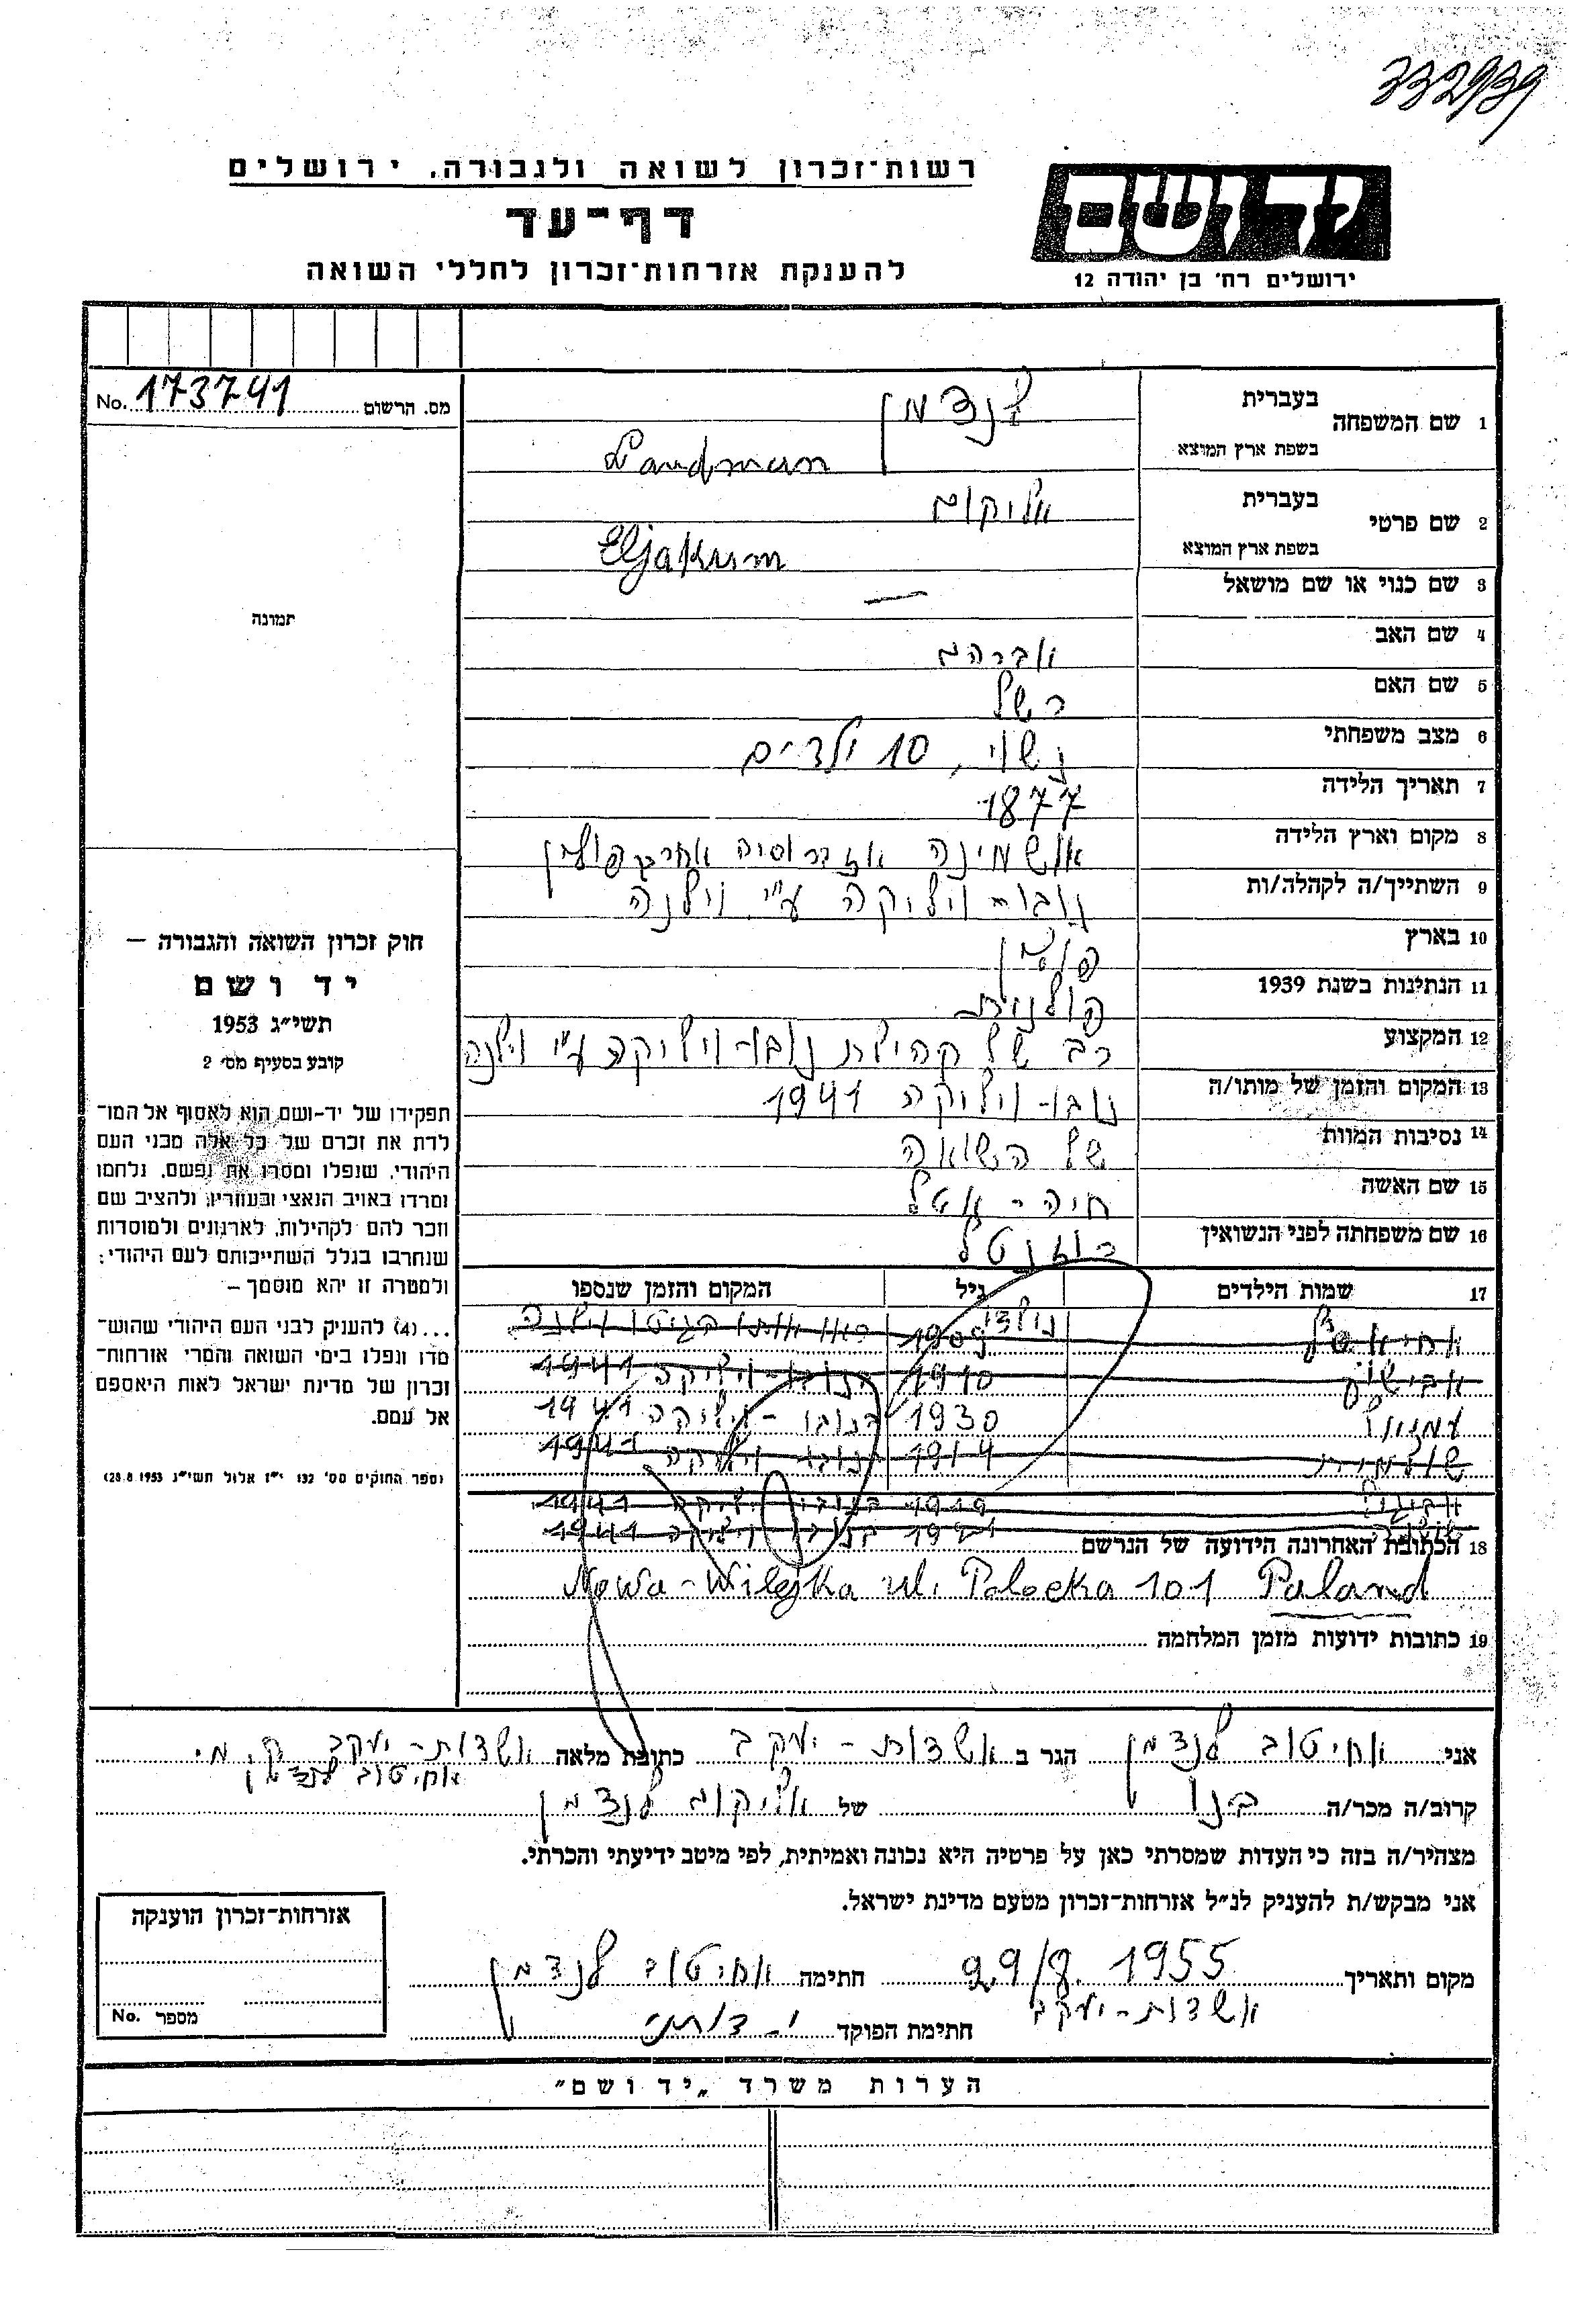 332939
רשות־זכרון לשואה ולגבורה, ירושלים
דף־עד
להענקת אזרחות־זכרון לחללי השואה
יד ושם
ירושלים רח' בן יהודה 12
מס. הרשום No. 173741
1 שם המשפחה
בעברית לנדמן
בשפת ארץ המוצא Landman
2 שם פרטי
בעברית אליקום
בשפת ארץ המוצא Eljakum
3 שם כנוי או שם מושאל —
4 שם האב אברהם
5 שם האם רשל
6 מצב משפחתי נשוי, 10 ילדים
7 תאריך הלידה 1877
8 מקום וארץ הלידה אושמינה אז רוסיה אחרכ פולין
9 השתייך/ה לקהלה/ות נובו-וילייקה ע"י וילנה
10 בארץ פולין
11 הנתינות בשנת 1939 פולנית
12 המקצוע רב של קהילת נובו-וילייקה ע"י וילנה
13 המקום והזמן של מותו/ה נובו-וילייקה 1941
14 נסיבות המוות של השואה
15 שם האשה חיה-אטל
16 שם משפחתה לפני הנשואין
17 שמות הילדים גיל המקום והזמן שנספו
נולד 1909 וילנה
1910 בנובו-וילייקה 1941
1930 בנובו-וילייקה 1941
שולמית 1914 בנובו וילייקה 1941
1919 בנובו וילייקה 1941
בנובו וילייקה 1941
18 הכתובת האחרונה הידועה של הנרשם
Nowa-Wilejka ul. Polocka 101 Poland
19 כתובות ידועות מזמן המלחמה
תמונה
חוק זכרון השואה והגבורה —
יד ושם
תשי"ג 1953
קובע בסעיף מס' 2
תפקידו של יד-ושם הוא לאסוף אל המו־
לדת את זכרם של כל אלה מבני העם
היהודי, שנפלו ומסרו את נפשם, נלחמו
ומרדו באויב הנאצי ובעוזריו, ולהציב שם
וזכר להם לקהילות, לארגונים ולמוסדות
שנחרבו בגלל השתייכותם לעם היהודי;
ולמטרה זו יהא מוסמך –
...(4) להעניק לבני העם היהודי שהוש־
מדו ונפלו בימי השואה והמרי אזרחות־
זכרון של מדינת ישראל לאות היאספם
אל עמם.
(ספר החוקים מס' 132 י"ז אלול תשי"ג 28.8.1953)
אני אחיטוב לנדמן הגר ב אשדות-יעקב כתובת מלאה אשדות-יעקב ק.מ.
אחיטוב לנדמן
קרוב/ה מכר/ה בנו של אליקום לנדמן
מצהיר/ה בזה כי העדות שמסרתי כאן על פרטיה היא נכונה ואמיתית, לפי מיטב ידיעתי והכרתי.
אני מבקש/ת להעניק לנ"ל אזרחות־זכרון מטעם מדינת ישראל.
מקום ותאריך 1955 חתימה אחיטוב לנדמן
אשדות-יעקב
חתימת הפוקד
אזרחות־זכרון הוענקה
מספר No.
הערות משרד „יד ושם"